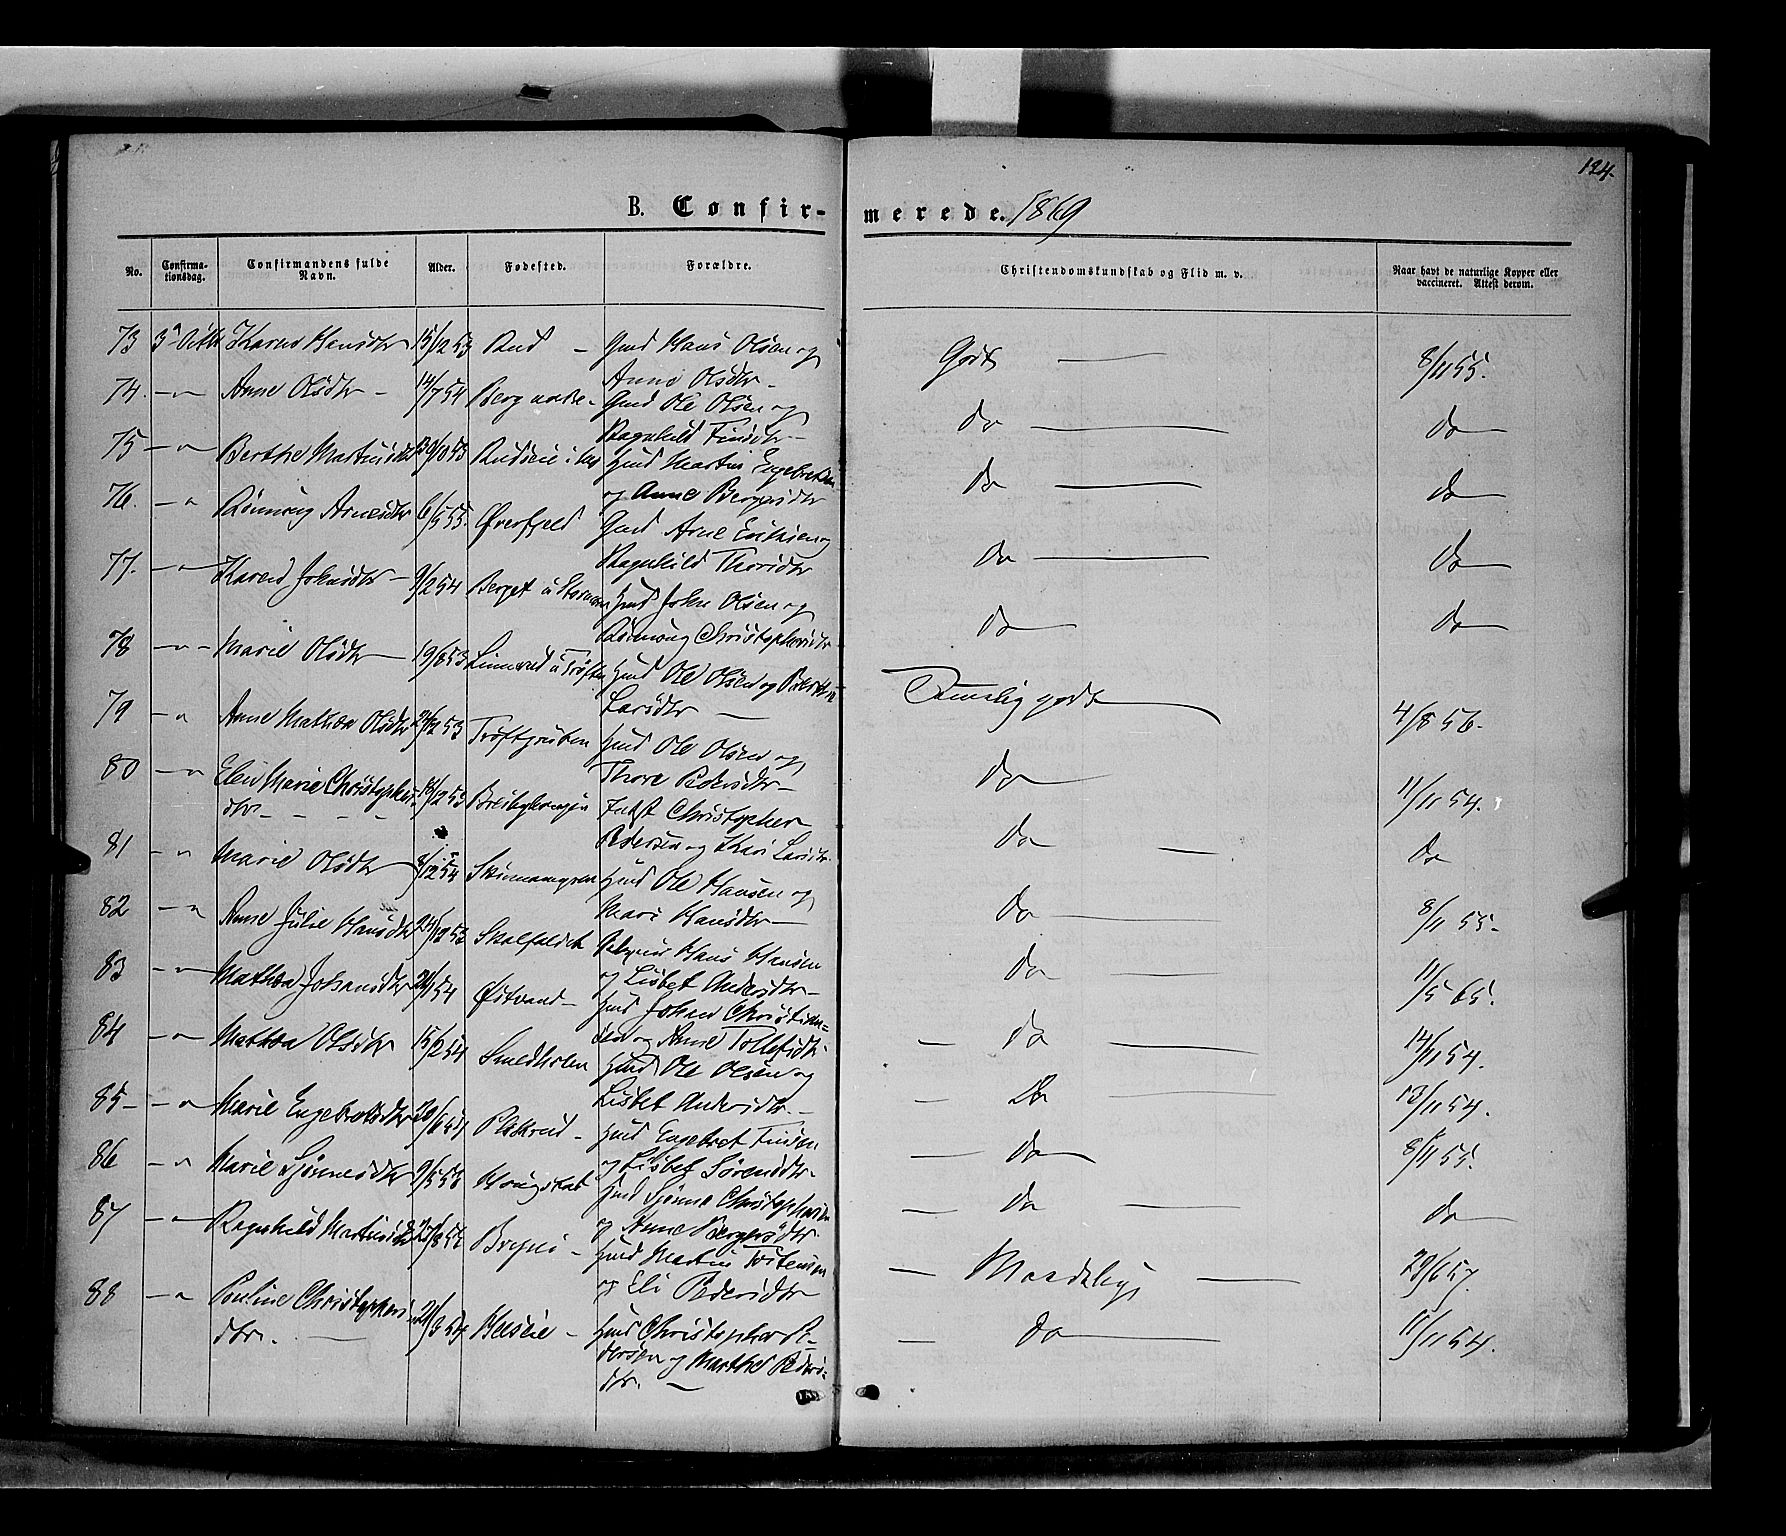 124.
B. Confirmerede. 1869
No.
Confirmationsdag.
Confirmandens fulde Navn.
Alder.
Fødested.
Forældre.
Christendomskundskab og Flid m. v.
Naar havt de naturlige Kopper eller vaccineret. Attest derom.
73 3 Octbr Karen Hansdtr 15/12 53 Rud - Gmd Hans Olsen og
Anne Olsdtr - Godt 8/11 55.
74. -"- Anne Olsdtr - 14/7 54 Berg - Gmd Ole Olsen og
Ragnhild Finsdtr - do do
75 -"- Berthe Martinsdtr 53 Rudseie Hmd Martin Engebretsen
og Anne Bergersdtr do do
76. -"- Rønnaug Arnesdtr 6/5 55. Øverfjeld Gmd Arne Eriksen og
Ragnhild Thorsdtr do do
77. -"- Karen Johnsdtr - 9/2 54 Berget Hmd John Olsen og
Rønnaug Christophersdtr do do
78 -"- Marie Olsdtr 19/6 53 Linnerud Hmd Ole Olsen og
Larsdtr - Temelig godt 4/8 56.
79 -" Anne Mathea Olsdtr 53 Trøftgruben Hmd Ole Olsen og
Thore Pedersdtr - do 11/11 54.
80 -"- Elen Marie Christophers-
dtr. 53 Indst Christopher
Pedersen og Kari Larsdtr. do do
81 -" Marie Olsdtr 8/12 54 Hmd Ole Hansen og
Mari Hansdtr - do 8/11 55.
82 -" Anne Julie Hansdtr 53 Hans Hansen
og Lisbet Andersdtr - do 11/5 65.
83 -"- Mathea Johansdtr 54 Østvand - Hmd Johan Christian=
sen og Anne Tollefsdtr. do 14/11 54.
84 -"- Mathea Olsdtr 15/2 54 Smedholen Hmd Ole Olsen og
Lisbet Andersdtr - do 13/11 54.
85 - -" Marie Engebretsdtr 20/6 54 Hmd Engebret Finsen
og Lisbet Sørensdtr. do 8/11 55.
86 -" Marie Sjønnesdtr 9/5 53 Hmd Sjønne Christophersen
og Anne Bergersdtr. do do
87 -" Ragnhild Martinsdtr 27/8 54 - Hmd Martin Tostensen
og Eli Pedersdtr Maadelig 29/6 57.
88 -" Pauline Christophers-
dtr. 21/3 54 - Hmd Christopher Pe-
dersen og Marthe Peders-
dtr. do 11/11 54.